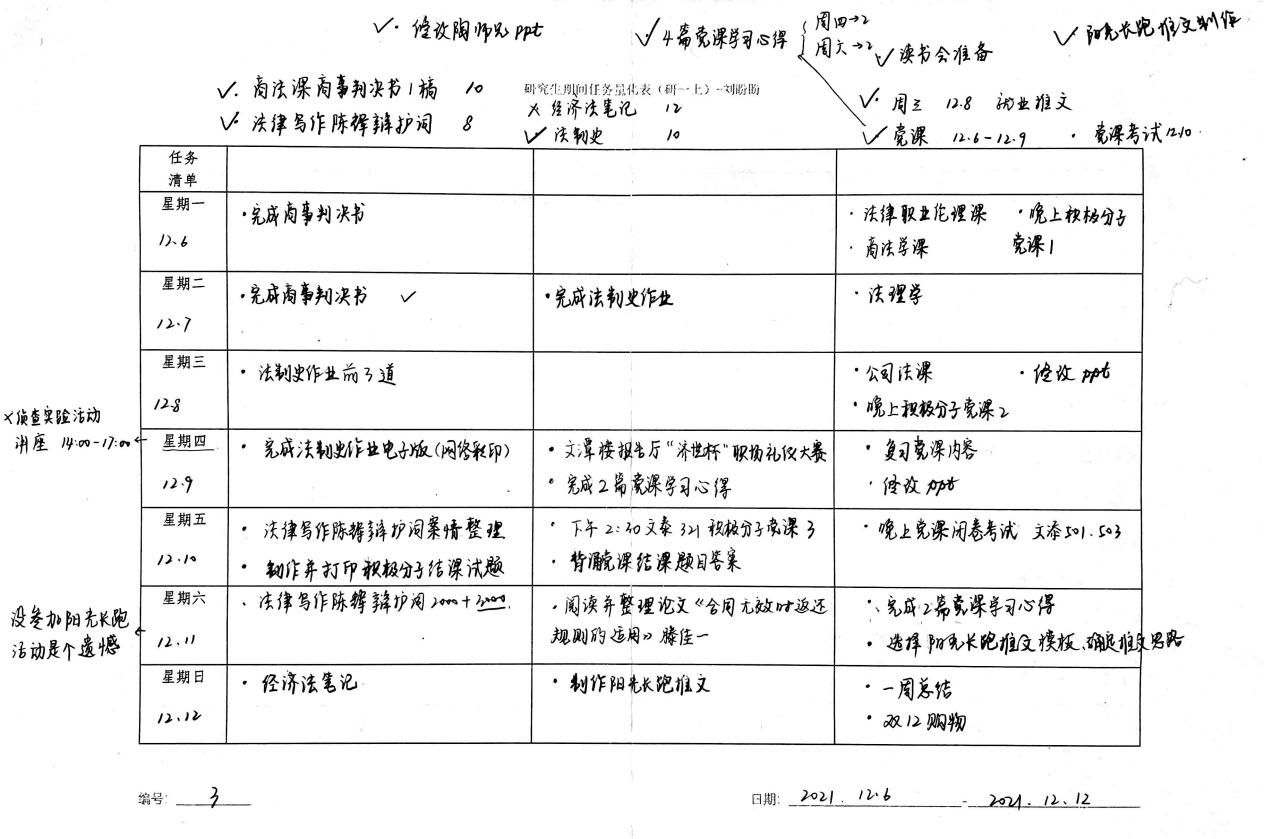 ✓· 修改陶师兄ppt
✓ 4篇党课学习心得 { 周四→2
周六→2
✓ 读书会准备
✓ 阳光长跑推文制作
✓· 商法课商事判决书1稿 10
研究生期间任务量化表（研一上）--刘盼盼
✓· 法律写作陈辉辩护词 8
× 经济法笔记 12
✓ 法制史 10
✓· 周三 12.8 就业推文
✓ 党课 12.6-12.9 · 党课考试12.10
任务
清单
星期一
12.6
·完成商事判决书
·法律职业伦理课 ·晚上积极分子
党课1
·商法学课
星期二
12.7
·完成商事判决书 ✓
·完成法制史作业
·法理学
星期三
12.8
·法制史作业前3道
·公司法课 ·修改ppt
·晚上积极分子党课2
×侦查实验活动
讲座 14:00-17:00←
星期四
12.9
·完成法制史作业电子版(网络彩印)
·文潭楼报告厅“济世杯”职场礼仪大赛
·完成2篇党课学习心得
·复习党课内容
·修改ppt
星期五
12.10
·法律写作陈辉辩护词案情整理
·制作并打印积极分子结课试题
·下午2:30文泰321积极分子党课3
·背诵党课结课题目答案
·晚上党课闭卷考试 文添501.503
没参加阳光长跑
活动是个遗憾
星期六
12.11
·法律写作陈辉辩护词2000+3000
·阅读并整理论文《合同无效时返还
规则的适用》滕佳一
·完成2篇党课学习心得
·选择阳光长跑推文模板、确定推文思路
星期日
12.12
·经济法笔记
·制作阳光长跑推文
·一周总结
·双12购物
编号: 3
日期: 2021.12.6 - 2021.12.12